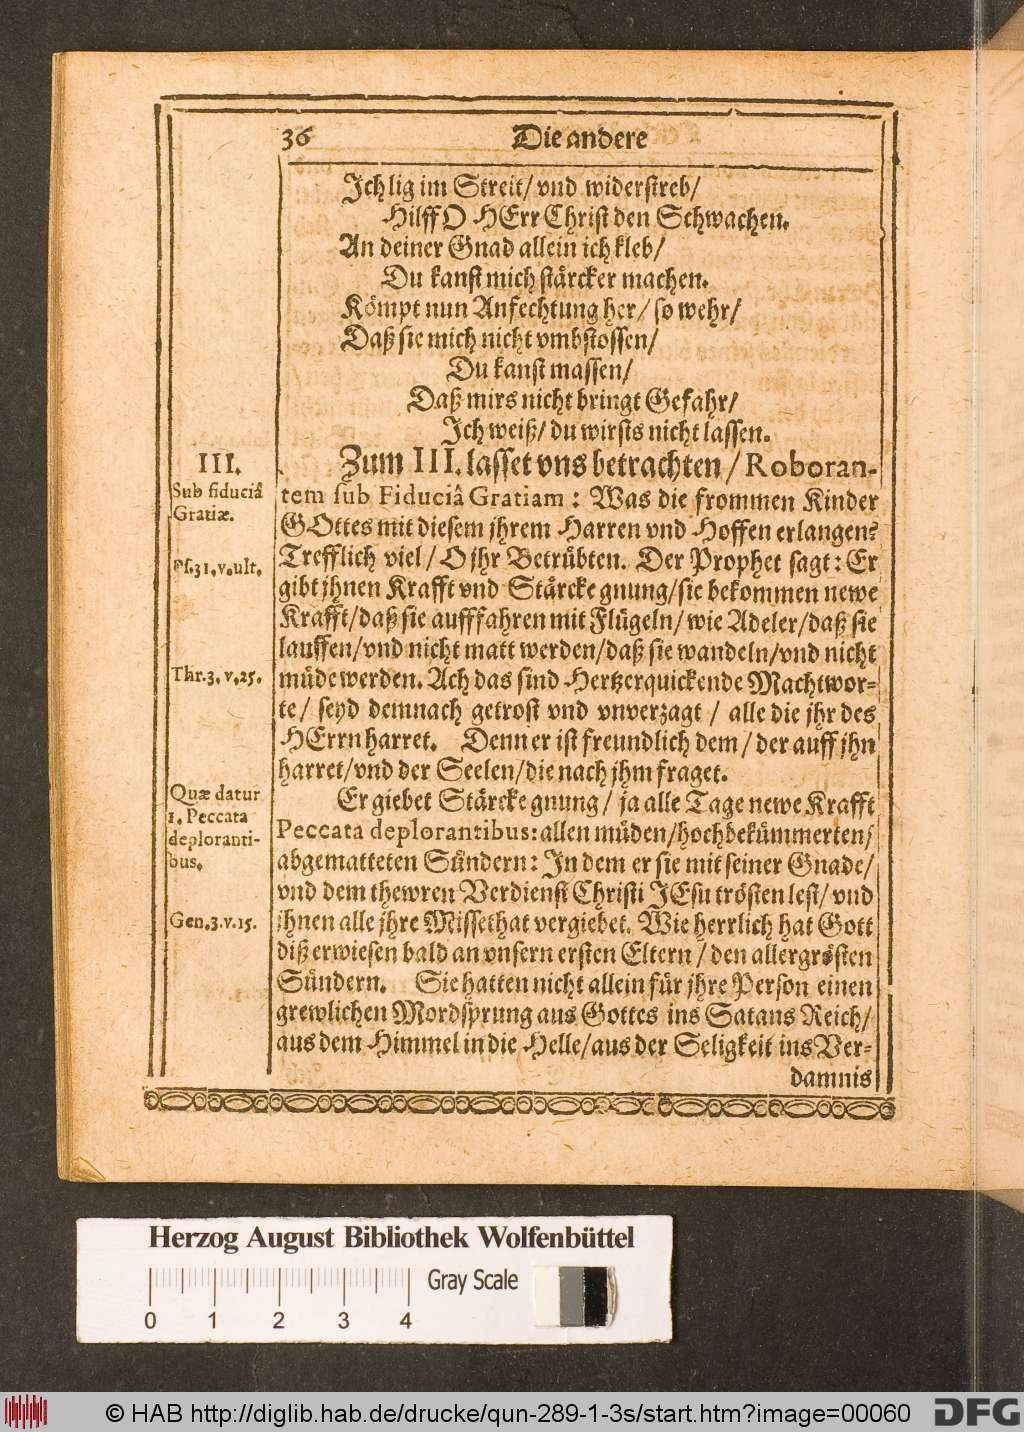 36
Die andere
Ich lig im Streit/ vnd widerstreb/
Hilff O HErr Christ den Schwachen.
An deiner Gnad allein ich kleb/
Du kanst mich stärcker machen.
Kömpt nun Anfechtung her/ so wehr/
Daß sie mich nicht vmbstossen/
Du kanst massen/
Daß mirs nicht bringt Gefahr/
Ich weiß/ du wirsts nicht lassen.
III.
Sub fiduciâ
Gratiæ.
Ps.31.v.ult.
Thr.3.v.25.
Quæ datur
1. Peccata
deploranti-
bus.
Gen.3.v.15.
Zum III. lasset vns betrachten / Roboran-
tem sub Fiduciâ Gratiam: Was die frommen Kinder
GOttes mit diesem jhrem Harren vnd Hoffen erlangen?
Trefflich viel/ O jhr Betrübten. Der Prophet sagt: Er
gibt jhnen Krafft vnd Stärcke gnung/ sie bekommen newe
Krafft/ daß sie aufffahren mit Flügeln/ wie Adeler/ daß sie
lauffen/ vnd nicht matt werden/ daß sie wandeln/ vnd nicht
müde werden. Ach das sind Hertzerquickende Machtwor-
te/ seyd demnach getrost vnd vnverzagt / alle die jhr des
HErrn harret. Denn er ist freundlich dem / der auff jhn
harret/ vnd der Seelen/ die nach jhm fraget.
Er giebet Stärcke gnung/ ja alle Tage newe Krafft
Peccata deplorantibus: allen müden/ hochbekümmerten/
abgematteten Sündern: In dem er sie mit seiner Gnade/
vnd dem thewren Verdienst Christi JEsu trösten lest/ vnd
jhnen alle jhre Missethat vergiebet. Wie herrlich hat Gott
diß erwiesen bald an vnsern ersten Eltern / den allergrösten
Sündern. Sie hatten nicht allein für jhre Person einen
grewlichen Mordsprung aus Gottes ins Satans Reich/
aus dem Himmel in die Helle/ aus der Seligkeit ins Ver-
damnis
Herzog August Bibliothek Wolfenbüttel
Gray Scale
0 1 2 3 4
© HAB http://diglib.hab.de/drucke/qun-289-1-3s/start.htm?image=00060
DFG